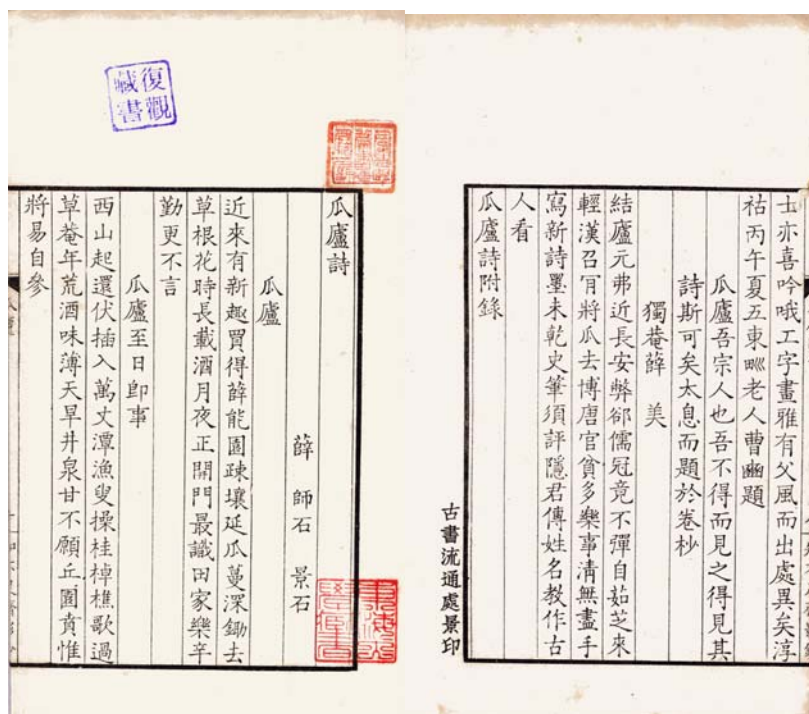 復觀藏書
瓜廬詩
薛師石 景石
瓜廬
近來有新趣買得薛能園疎壤延瓜蔓深鋤去
草根花時長載酒月夜正開門最識田家樂辛
勤更不言
瓜廬至日卽事
西山起還伏插入萬丈潭漁叟操桂棹樵歌過
草菴年荒酒味薄天旱井泉甘不願丘園賁惟
將易自參
士亦喜吟哦工字畫雅有父風而出處異矣淳
祜丙午夏五東甽老人曹豳題
瓜廬吾宗人也吾不得而見之得見其
詩斯可矣太息而題於卷杪
獨菴薛 美
結廬元弗近長安弊卻儒冠竟不彈自茹芝來
輕漢召肎將瓜去博唐官貧多樂事清無盡手
寫新詩墨未乾史筆須評隱君傳姓名教作古
人看
瓜廬詩附錄
古書流通處景印